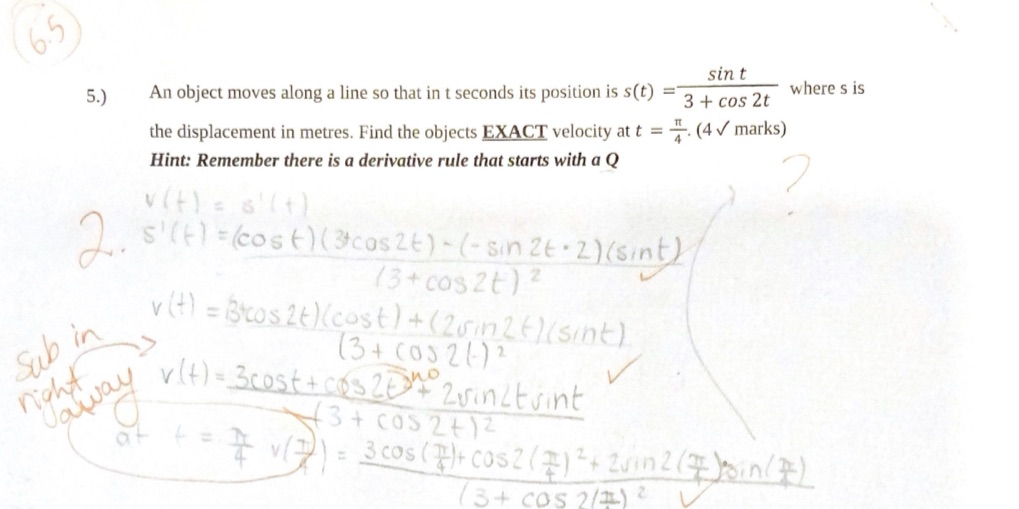 6.5
5.) An object moves along a line so that in t seconds its position is s(t) = sin t / 3 + cos 2t where s is
the displacement in metres. Find the objects EXACT velocity at t = π/4. (4 ✓ marks)
Hint: Remember there is a derivative rule that starts with a Q
?
v(t) = s'(t)
2.
s'(t) = (cos t)(3+cos 2t) - (-sin 2t · 2)(sin t) / (3 + cos 2t)²
✓
v(t) = (3+cos 2t)(cos t) + (2 sin 2t)(sin t) / (3 + cos 2t)²
sub in right away
v(t) = 3 cos t + cos 2t² + 2 sin 2t sin t / (3 + cos 2t)²
no
✓
at t = π/4 v(π/4) = 3 cos(π/4) + cos 2(π/4)² + 2 sin 2(π/4) sin(π/4) / (3 + cos 2(π/4))²
✓